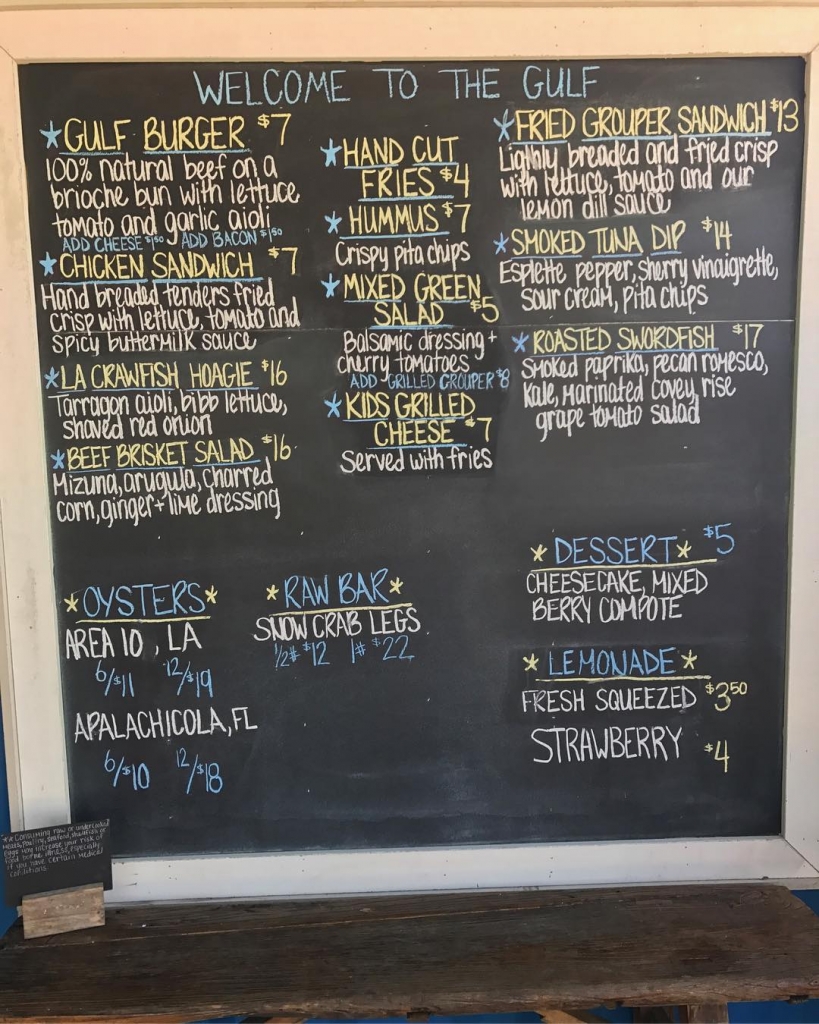 WELCOME TO THE GULF
GULF BURGER $7
100% natural beef on a
brioche bun with lettuce
tomato and garlic aioli
ADD CHEESE $1.50 ADD BACON $1.50
CHICKEN SANDWICH $7
Hand breaded tenders fried
crisp with lettuce, tomato and
spicy buttermilk sauce
LA CRAWFISH HOAGIE $16
Tarragon aioli, bibb lettuce,
shaved red onion
BEEF BRISKET SALAD $16
Mizuna, arugula, charred
corn, ginger + lime dressing
HAND CUT
FRIES $4
HUMMUS $7
Crispy pita chips
MIXED GREEN
SALAD $5
Balsamic dressing +
cherry tomatoes
ADD GRILLED GROUPER $8
KIDS GRILLED
CHEESE $7
Served with fries
FRIED GROUPER SANDWICH $13
Lighly breaded and fried crisp
with lettuce, tomato and our
lemon dill sauce
SMOKED TUNA DIP $14
Esplette pepper, sherry vinaigrette,
sour cream, pita chips
ROASTED SWORDFISH $17
Smoked paprika, pecan romesco,
kale, marinated covey rise
grape tomato salad
OYSTERS
AREA 10, LA
6/$11 12/$19
APALACHICOLA, FL
6/$10 12/$18
RAW BAR
SNOW CRAB LEGS
1/2# $12 1# $22
DESSERT $5
CHEESECAKE, MIXED
BERRY COMPOTE
LEMONADE
FRESH SQUEEZED $3.50
STRAWBERRY $4
Consuming raw or undercooked
meats, poultry, seafood, shellfish or
eggs may increase your risk of
food borne illness, especially
if you have certain medical
conditions